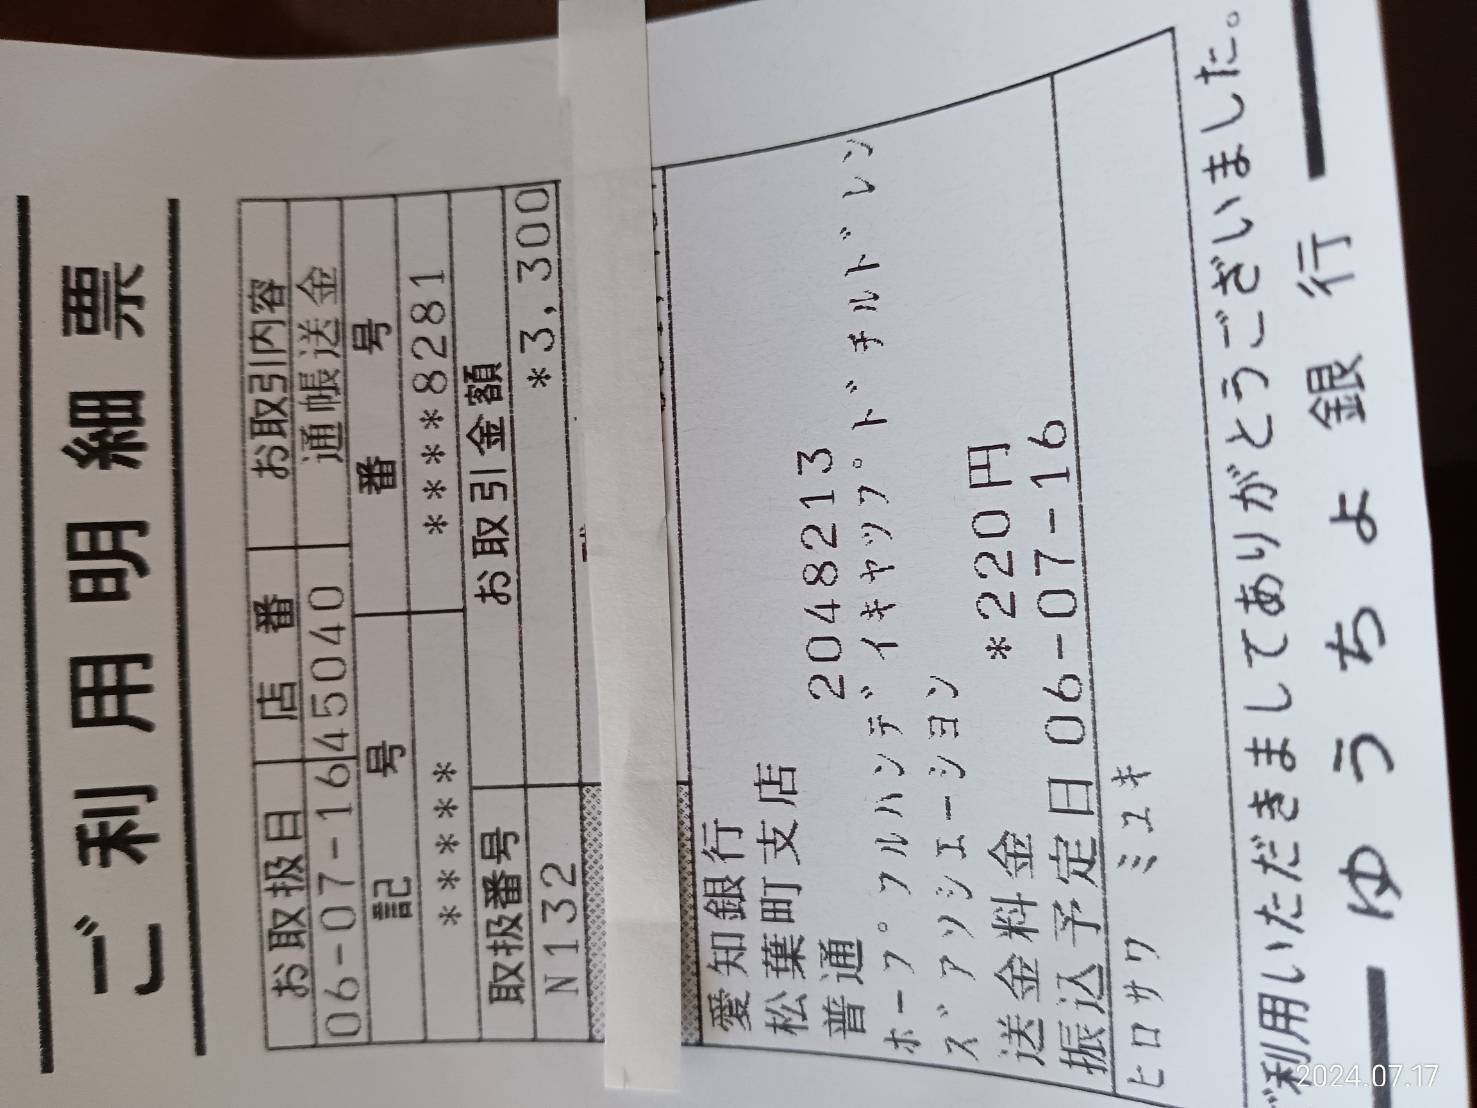 ご利用明細票
お取扱日 店番 お取引内容
06-07-16 445040 通帳送金
記号 番号
***** ****8281
取扱番号 お取引金額
N132 *3,300
愛知銀行
松葉町支店
普通 2048213
ﾎｰﾌﾟﾌﾙﾊﾝﾃﾞｲｷｬｯﾌﾟﾄﾞﾁﾙﾄﾞﾚﾝ
ｽﾞｱｿｼｴｰｼﾖﾝ
送金料金 *220円
振込予定日 06-07-16
ﾋﾛｻﾜ ﾐﾕｷ
ご利用いただきましてありがとうございました。
ゆうちょ銀行
2024.07.17